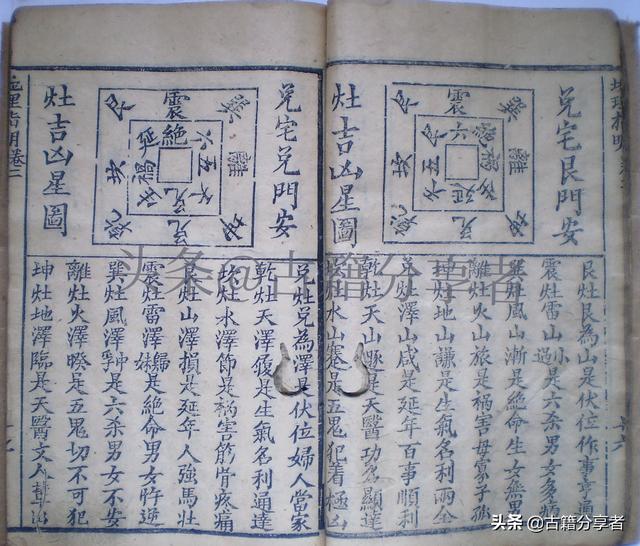 地理指明
兌宅艮門安
巽
震
艮
離
坎
坤
兌
乾
六
絶
禍
五
延
灶吉凶星圖
艮灶艮為山是伏位作事亨通
震灶雷山小過是六杀男女多病
巽灶風山漸是絶命生女無男
離灶火山旅是禍害母寡子孤
坤灶地山謙是生氣名利兩全
兌灶澤山咸是延年百事順利
乾灶天山遯是天醫功名顯達
坎灶水山蹇是五鬼犯着極凶
兌宅兌門安
巽
震
艮
離
坎
坤
兌
乾
六
絶
延
五
禍
灶吉凶星圖
兌灶兌為澤是伏位婦人當家
乾灶天澤履是生氣名利通達
坎灶水澤節是禍害筋骨疼痛
艮灶山澤損是延年人強馬壯
震灶雷澤歸妹是絶命男女忤逆
巽灶風澤中孚是六杀男女不安
離灶火澤睽是五鬼切不可犯
坤灶地澤臨是天醫文人
地理指明卷二
头条@古籍分享者
头条 @古籍分享者